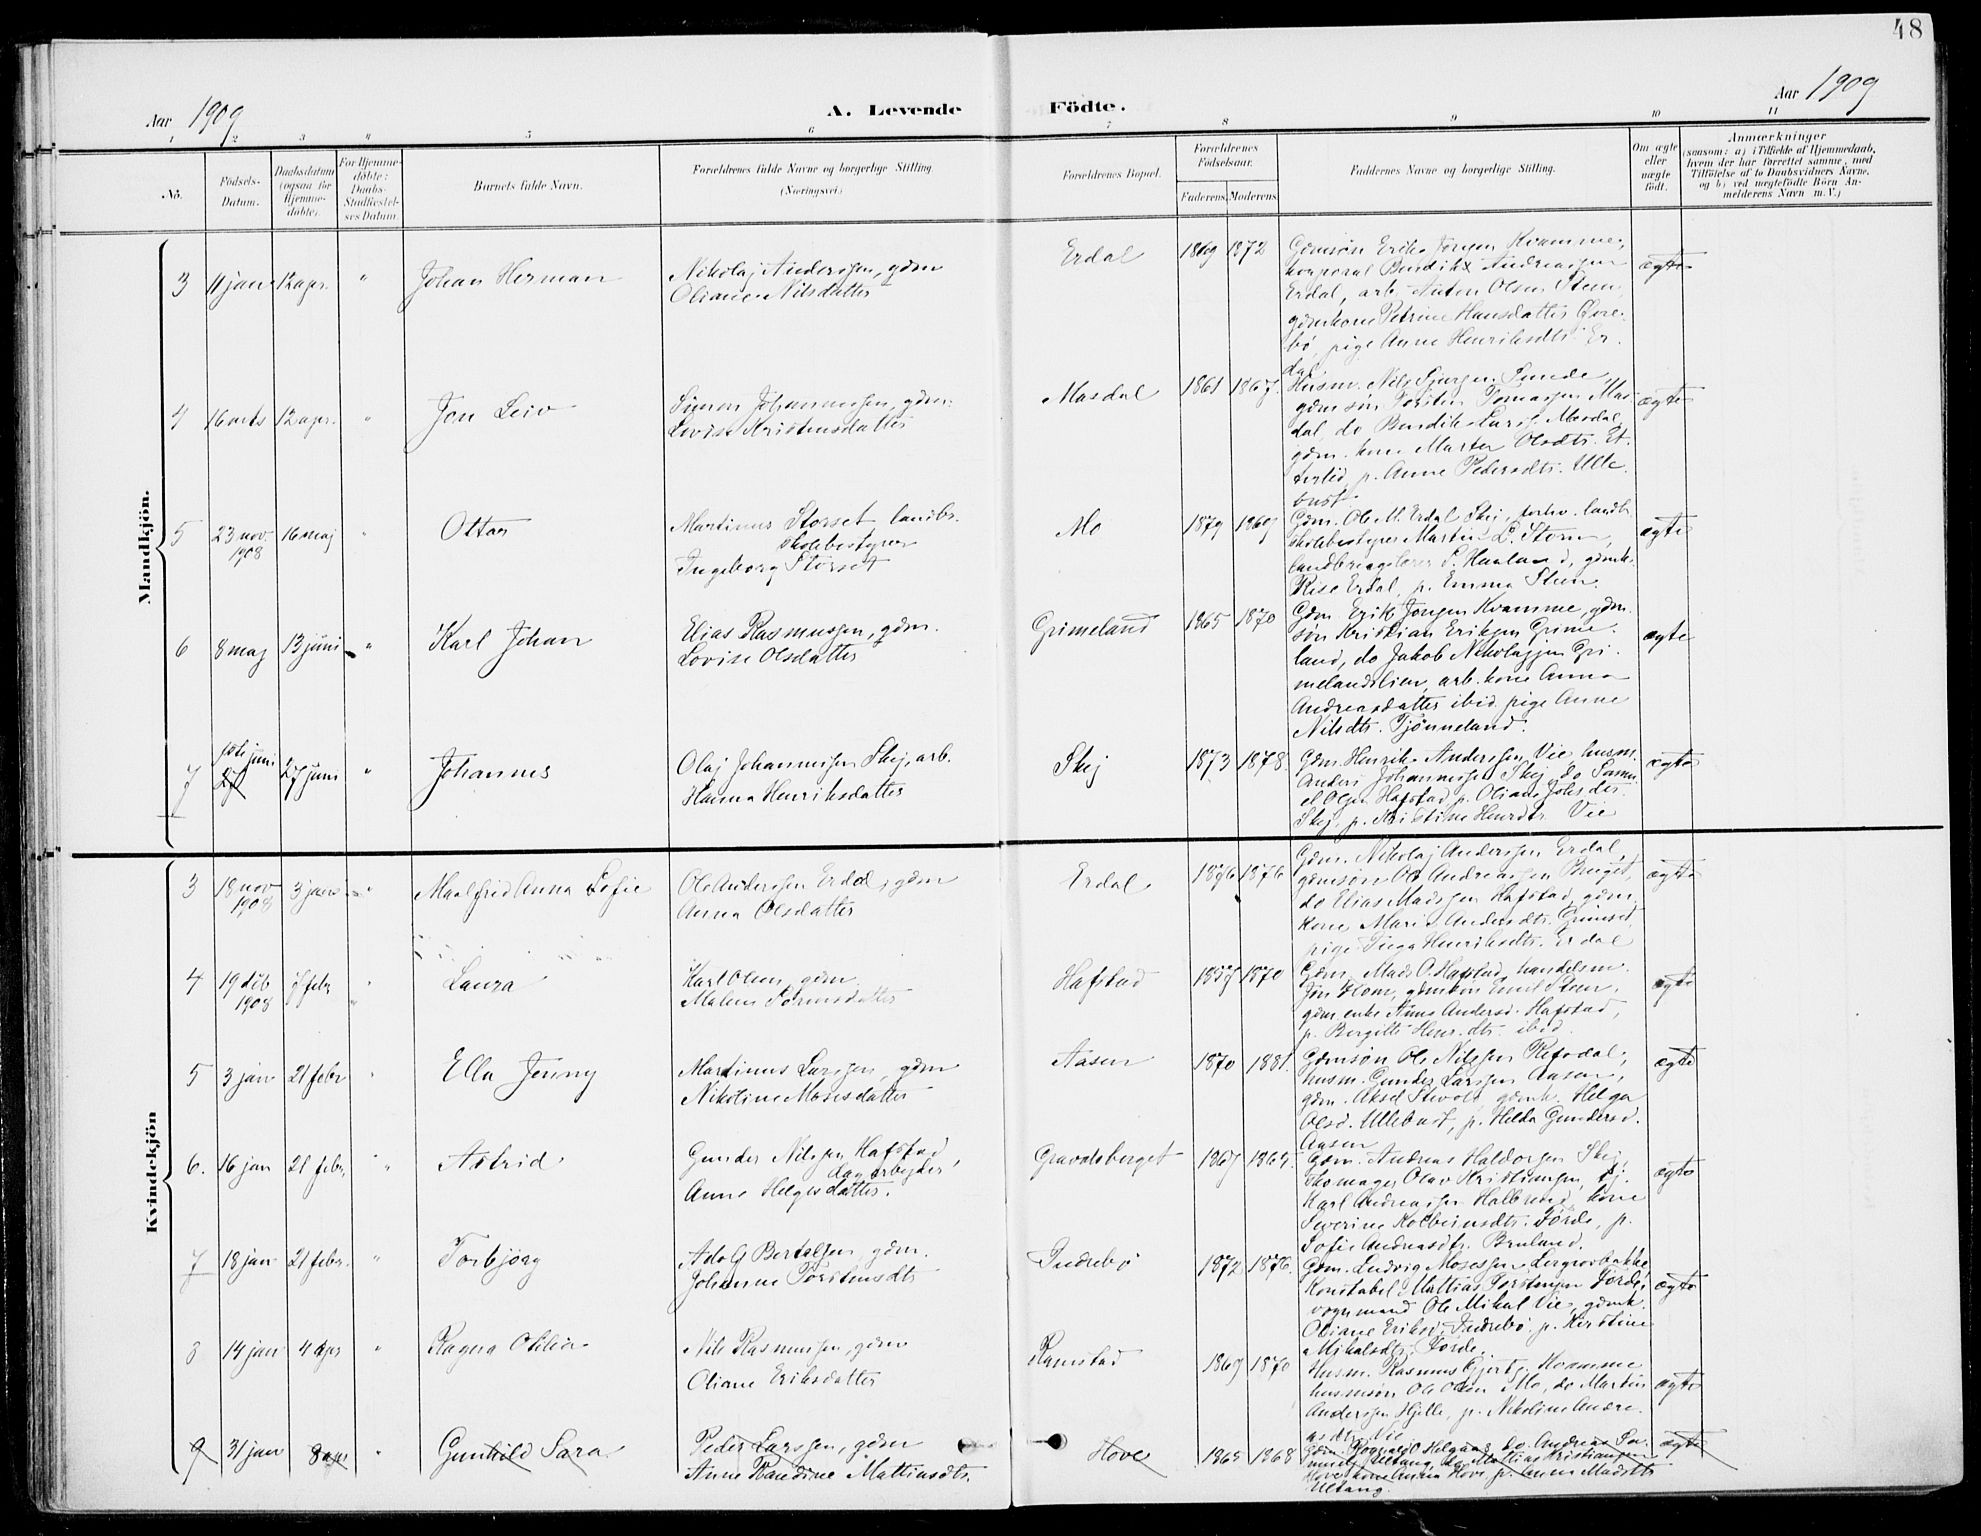 48
Aar 1909
A. Levende Födte.
Aar 1909
1 2 3 4 5 6 7 8 9 10 11
No.
Födsels-Datum.
Daabsdatum (ogsaa for Hjemme-döbte).
For Hjemme-döbte: Daabs-Stadfæstel-ses Datum.
Barnets fulde Navn.
Forældrenes fulde Navne og borgerlige Stilling (Næringsvei.)
Forældrenes Bopæl.
Forældrenes Födselsaar.
Faderens. Moderens.
Faddernes Navne og borgerlige Stilling.
Om ægte eller uægte födt.
Anmærkninger
(saasom: a) i Tilfælde af Hjemmedaab,
hvem der har forrettet samme, med
Tilföielse af to Daabsvidners Navne,
og b) ved uægtefödte Börn An-
melderens Navn m. V.)
Mandkjön.
3 11 jan 12 apr. " Johan Herman
Nikolaj Anderssen, gdm
Oliane Nilsdatter
Erdal 1869 1872
Gdmsøn Erik Jørgen Kvamme,
korporal Bendik Andreassen
Erdal, arb. Anton Olsen Sten,
gdmkone Petrine Hansdatter Øvre-
bø, pige Anne Henriksdtr. Er-
dal.
ægte
4 16 mts 12 apr. " Jon Leiv
Simon Johannessen, gdm.
Lovise Kristensdatter
Masdal 1861 1867.
Husm. Nils Sjursen Sunde,
gdmsøn Torsten Tomassen Mas-
dal, do Bendik Larss. Masdal,
gdm. kone Marta Olsdtr. Et-
terlid, p. Anne Pedersdtr. Ulle-
bust.
ægte
5 23 nov 1908 16 maj " Ottar
Martinus Storset landbr.
skolebestyrer
Ingeborg Storset
Mo 1879 1869
Gdm. Ole M. Erdal Skej, forhv. landb.
skolebestyrer Martin L. Storm,
landbrugslærer S. Haaland, gdmk.
Rise Erdal, p. Emma Steen.
ægte
6 8 maj 13 juni " Karl Johan
Elias Rasmussen, gdm.
Lovise Olsdatter
Grimeland 1865 1870
Gdm. Erik Jørgen Kvamme, gdm.
søn Kristian Eriksen Grime-
land, do Jakob Nikolajsen Gri-
melandslien, arb. kone Anna
Andreasdatter ibid. pige Anne
Nilsdtr. Tjønneland.
ægte
7 juni 27 juni " Johannes
Olaj Johannessen Skej, arb.
Hanna Henriksdatter
Skej 1873 1878.
Gdm. Henrik Anderssen Vie husm.
Anders Johannessen Skej, do Samu-
el Olsen Hafstad, p. Oliane Johs dtr.
Skej, p. Kristine Henrdtr. Vie
ægte
Kvindekjön
3 18 nov 1908 3 jan " Maalfrid Anna Sofie
Ole Anderssen Erdal, gdm
Anna Olsdatter
Erdal 1876 1876
Gdm. Nikolaj Anderssen Erdal,
gdmsøn Ole Andreassen Bruget,
do Elias Madssen Hafstad, gdm.
kone Mari Andersdtr. Grimset,
pige Henriksdtr. Erdal
ægte
4 19 dcb 1908 7 febr " Laura
Karl Olsen, gdm
Malene Simensdatter
Hafstad 1857 1870
Gdm. Mads O. Hafstad, handelsm.
Jon Flom, gdmsøn Emil Steen,
gdm. enke Anna Andersd. Hafstad,
p. Bergitte Henr. dtr. ibid.
ægte
5 3 jan 21 febr " Ella Jenny
Martinus Larssen, gdm
Nikoline Mosesdatter
Aasen 1870 1881.
Gdmsøn Ole Nilssen Refsdal,
husm. Gunder Larssen Aasen,
gdm. Aksel Stevold gdmk. Helga
Olsd. Ullebust, p. Hilda Gundersd.
Aasen
ægte
6. 16 jan 21 febr. " Astrid
Gunder Nilssen Hafstad,
dagarbejder,
Anne Helgesdatter.
Gravdsberget 1867 1864.
Gdm. Andreas Haldorsen Skej
skomager Olav Kristiansen, tj.
Karl Andreassen Halbrend, kone
Severine Kolbeinsdtr. Førde, p.
Sofie Andreasdtr. Bruland.
ægte
7 18 jan 21 febr. " Torbjørg
Adolf Bertelsen, gdm.
Johanne Torstensdtr
Indrebø 1872 1876.
Gdm. Ludvig Mosessen Lergrovbakke
Konstabel Mattias Torstensen Førde,
vognmand Ole Mikal Vie, gdmk.
Oliane Eriksd. Indrebø, p. Kirstine
Mikalsdtr. Førde.
ægte
8 14 jan 4 apr " Ragna Otilia
Nils Rasmussen, gdm
Oliane Eriksdatter
Ramstad 1867 1870
Husm. Rasmus Gjerts. Kvamme
husmsøn Ole Olsen Mo, do Martin
Anderssen Hjelle, p. Nikoline Andre-
asdtr. Vie
ægte
9 31 jan 8 apr " Gunhild Sara
Peder Larssen, gdm
Anne Bandine Mattiasdtr.
Hove 1865 1868
Gdm. Helgaas, do. Andreas Sa-
muels. Ultang, do Mattias Kristiansen
Hove kone Anna Hove, p. Anna Madsdtr
Ultang.
ægte